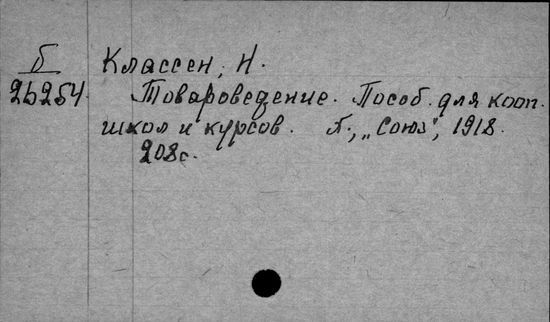 Б Классен, Н.
26254. Товароведение. Пособ. для кооп.
школ и курсов. П., „Союз", 1918.
208с.